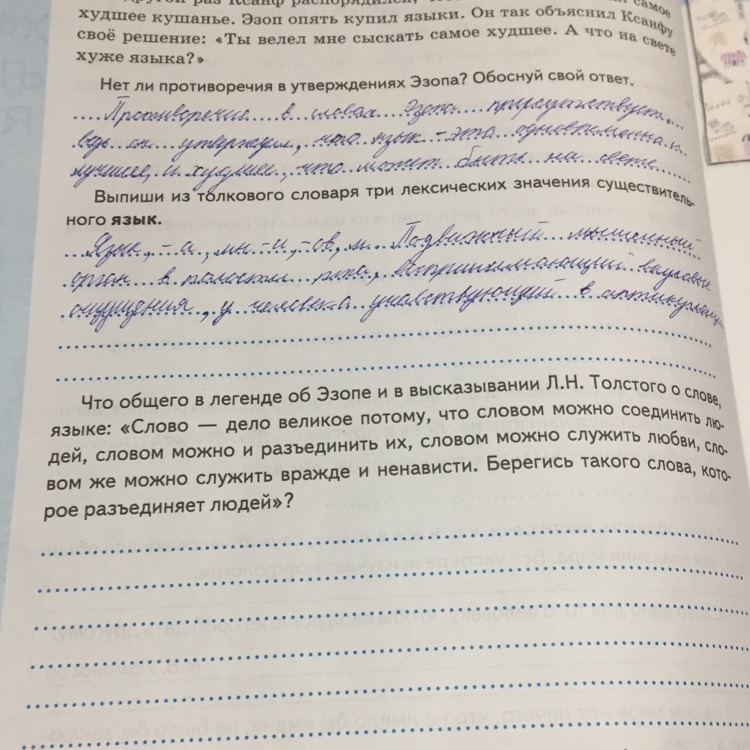 другой раз Ксанф распорядился, самое
худшее кушанье. Эзоп опять купил языки. Он так объяснил Ксанфу
своё решение: «Ты велел мне сыскать самое худшее. А что на свете
хуже языка?»
Нет ли противоречия в утверждениях Эзопа? Обоснуй свой ответ.
Противоречие в словах Эзопа присутствует,
ведь он утверждал, что язык - это одновременно и
лучшее, и худшее, что может быть на свете
Выпиши из толкового словаря три лексических значения существитель-
ного язык.
Язык, -а, мн -и, -ов, м. Подвижный мышечный
орган в полости рта, воспринимающий вкусовые
ощущения, у человека участвующий в артикуляции
Что общего в легенде об Эзопе и в высказывании Л.Н. Толстого о слове,
языке: «Слово — дело великое потому, что словом можно соединить лю-
дей, словом можно и разъединить их, словом можно служить любви, сло-
вом же можно служить вражде и ненависти. Берегись такого слова, кото-
рое разъединяет людей»?